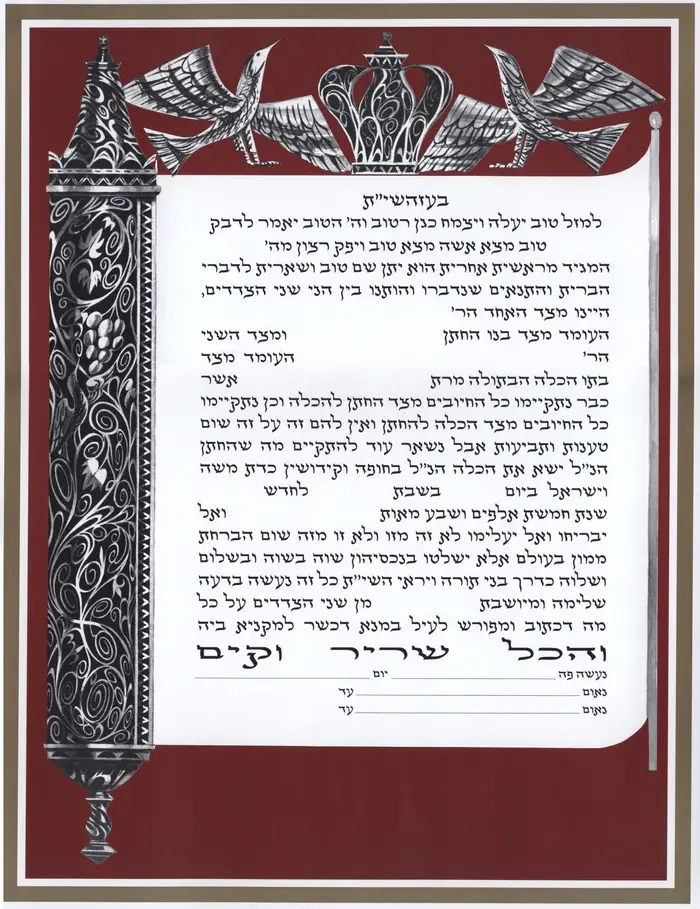 בעזהשי״ת
למזל טוב יעלה ויצמח כגן רטוב וה׳ הטוב יאמר לדבק
טוב מצא אשה מצא טוב ויפק רצון מה׳
המגיד מראשית אחרית הוא יתן שם טוב ושארית לדברי
הברית והתנאים שנדברו והותנו בין הני שני הצדדים,
היינו מצד האחד הר׳
העומד מצד בנו החתן ומצד השני
הר׳ העומד מצד
בתו הכלה הבתולה מרת אשר
כבר נתקיימו כל החיובים מצד החתן להכלה וכן נתקיימו
כל החיובים מצד הכלה להחתן ואין להם זה על זה שום
טענות ותביעות אבל נשאר עוד להתקיים מה שהחתן
הנ״ל ישא את הכלה הנ״ל בחופה וקידושין כדת משה
וישראל ביום בשבת לחדש
שנת חמשת אלפים ושבע מאות ואל
יבריחו ואל יעלימו לא זה מזו ולא זו מזה שום הברחת
ממון בעולם אלא ישלטו בנכסיהון שוה בשוה ובשלום
ושלוה כדרך בני תורה ויראי השי״ת כל זה נעשה בדעה
שלימה ומיושבת מן שני הצדדים על כל
מה דכתוב ומפורש לעיל במנא דכשר למקניא ביה
והכל שריר וקים
נעשה פה יום
נאום עד
נאום עד